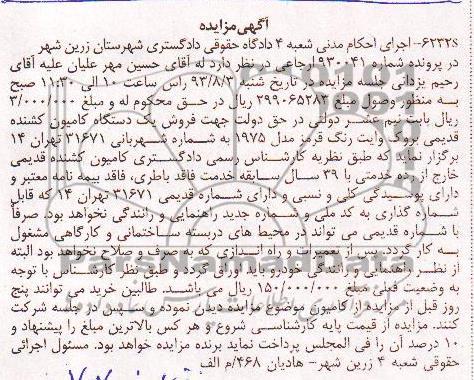 آگهی مزایده
۶۲۳۲S- اجرای احکام مدنی شعبه ۴ دادگاه حقوقی دادگستری شهرستان زرین شهر
در پرونده شماره ۹۳۰۰۴۱ ارجاعی در نظر دارد له آقای حسین مهر علیان علیه آقای
رحیم یزدانی جلسه مزایده در تاریخ شنبه ۹۳/۸/۳ راس ساعت ۱۰ الی ۱۱:۳۰ صبح
به منظور وصول مبلغ ۲۹۹۰۶۵۲۸۳ ریال در حق محکوم له و مبلغ ۳/۰۰۰/۰۰۰
ریال بابت نیم عشر دولتی در حق دولت جهت فروش یک دستگاه کامیون کشنده
قدیمی بروک وایت رنگ قرمز مدل ۱۹۷۵ به شماره شهربانی ۳۱۶۷۱ تهران ۱۴
برگزار نماید که طبق نظریه کارشناس رسمی دادگستری کامیون کشنده قدیمی
خارج از رده خدمتی با ۳۹ سال سابقه خدمت فاقد باطری، فاقد بیمه نامه معتبر و
دارای پوسیدگی کلی و نسبی و دارای شماره قدیمی ۳۱۶۷۱ تهران ۱۴ که قابل
شماره گذاری به کد ملی و شماره جدید راهنمایی و رانندگی نخواهد بود. صرفاً
با شماره قدیمی می تواند در محیط های دربسته ساختمانی و کارگاهی مشغول
به کار گردد. پس از تعمیرات و راه اندازی که به صرف و صلاح نخواهد بود البته
از نظر راهنمایی و رانندگی خودرو باید اوراق گردد و طبق نظر کارشناس با توجه
به وضعیت فعلی مبلغ ۱۵۰/۰۰۰/۰۰۰ ریال می باشد. طالبین خرید می توانند پنج
روز قبل از مزایده از کامیون موضوع مزایده دیدن نموده و سپس در جلسه شرکت
کنند. مزایده از قیمت پایه کارشناسی شروع و هر کس بالاترین مبلغ را پیشنهاد و
۱۰ درصد آن را فی المجلس پرداخت نماید برنده مزایده خواهد بود. مسئول اجرائی
حقوقی شعبه ۴ زرین شهر- هادیان ۴۶۸/م الف